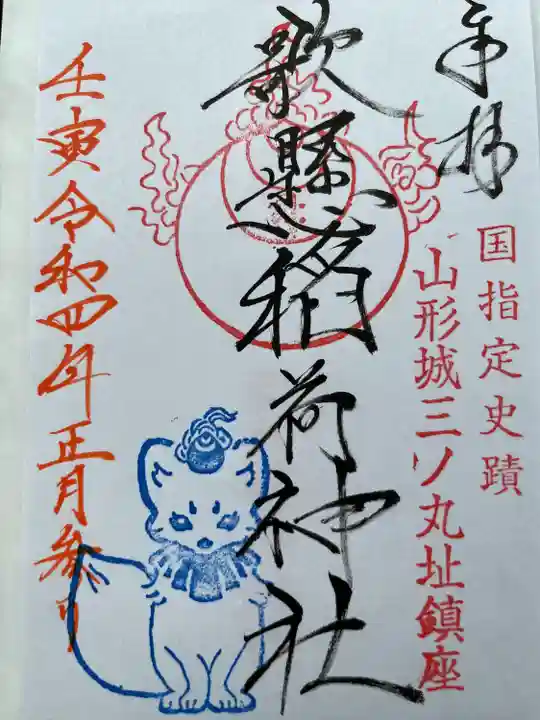 奉拝
国指定史蹟
山形城三ノ丸址鎮座
歌懸稲荷神社
壬寅令和四年正月参り